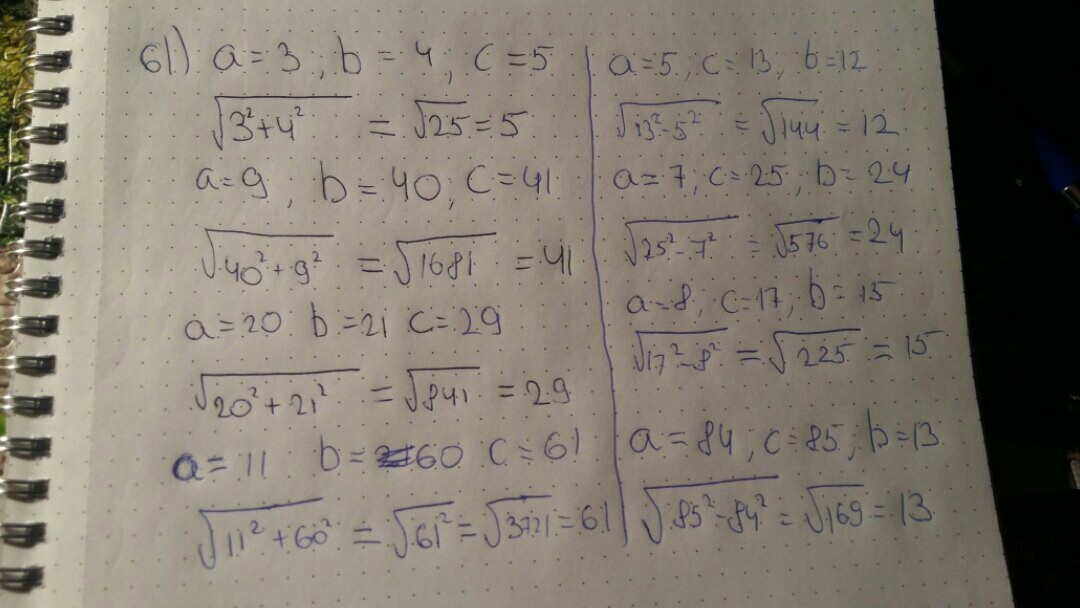 61) a = 3 ; b = 4 ; c = 5
√3²+4² = √25 = 5
a = 9 ; b = 40 ; c = 41
√40²+9² = √1681 = 41
a = 20 b = 21 c = 29
√20²+21² = √841 = 29
a = 11 b = 60 c = 61
√11²+60² = √61² = √3721 = 61
a = 5 ; c = 13 ; b = 12
√13²-5² = √144 = 12
a = 7 ; c = 25 ; b = 24
√25²-7² = √576 = 24
a = 8 ; c = 17 ; b = 15
√17²-8² = √225 = 15
a = 84 ; c = 85 ; b = 13
√85²-84² = √169 = 13